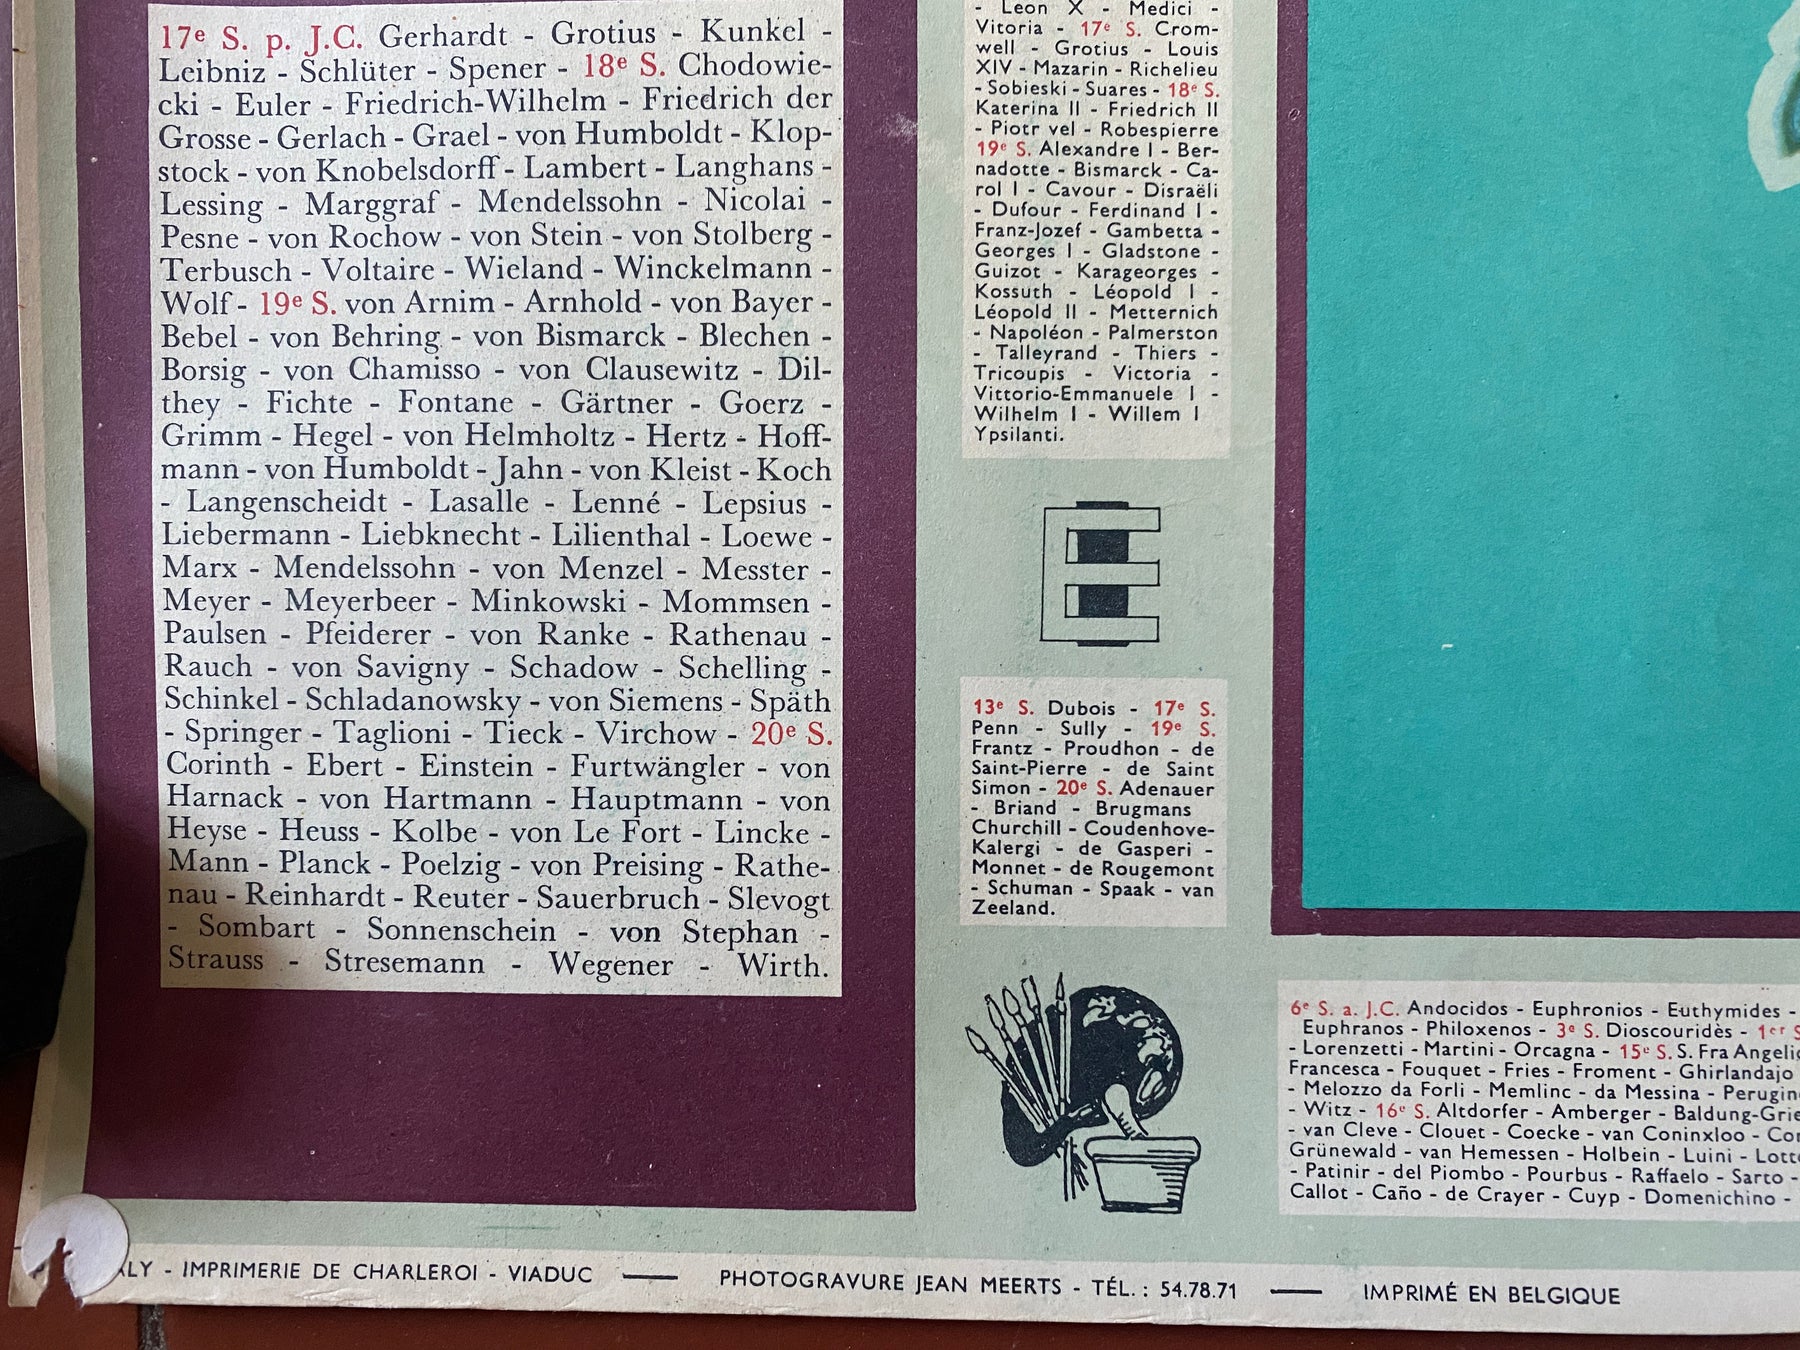 17e S. p. J.C. Gerhardt - Grotius - Kunkel -
Leibniz - Schlüter - Spener - 18e S. Chodowie-
cki - Euler - Friedrich-Wilhelm - Friedrich der
Grosse - Gerlach - Grael - von Humboldt - Klop-
stock - von Knobelsdorff - Lambert - Langhans -
Lessing - Marggraf - Mendelssohn - Nicolai -
Pesne - von Rochow - von Stein - von Stolberg -
Terbusch - Voltaire - Wieland - Winckelmann -
Wolf - 19e S. von Arnim - Arnhold - von Bayer -
Bebel - von Behring - von Bismarck - Blechen -
Borsig - von Chamisso - von Clausewitz - Dil-
they - Fichte - Fontane - Gärtner - Goerz -
Grimm - Hegel - von Helmholtz - Hertz - Hoff-
mann - von Humboldt - Jahn - von Kleist - Koch
- Langenscheidt - Lasalle - Lenné - Lepsius -
Liebermann - Liebknecht - Lilienthal - Loewe -
Marx - Mendelssohn - von Menzel - Messter -
Meyer - Meyerbeer - Minkowski - Mommsen -
Paulsen - Pfeiderer - von Ranke - Rathenau -
Rauch - von Savigny - Schadow - Schelling -
Schinkel - Schladanowsky - von Siemens - Späth
- Springer - Taglioni - Tieck - Virchow - 20e S.
Corinth - Ebert - Einstein - Furtwängler - von
Harnack - von Hartmann - Hauptmann - von
Heyse - Heuss - Kolbe - von Le Fort - Lincke -
Mann - Planck - Poelzig - von Preising - Rathe-
nau - Reinhardt - Reuter - Sauerbruch - Slevogt
- Sombart - Sonnenschein - von Stephan -
Strauss - Stresemann - Wegener - Wirth.
- Leon X - Medici -
Vitoria - 17e S. Crom-
well - Grotius - Louis
XIV - Mazarin - Richelieu
- Sobieski - Suares - 18e S.
Katerina II - Friedrich II
- Piotr vel - Robespierre
19e S. Alexandre I - Ber-
nadotte - Bismarck - Ca-
rol I - Cavour - Disraëli
- Dufour - Ferdinand I -
Franz-Jozef - Gambetta -
Georges I - Gladstone -
Guizot - Karageorges -
Kossuth - Léopold I -
Léopold II - Metternich
- Napoléon - Palmerston
- Talleyrand - Thiers -
Tricoupis - Victoria -
Vittorio-Emmanuele I -
Wilhelm I - Willem I
Ypsilanti.
E
13e S. Dubois - 17e S.
Penn - Sully - 19e S.
Frantz - Proudhon - de
Saint-Pierre - de Saint
Simon - 20e S. Adenauer
- Briand - Brugmans
Churchill - Coudenhove-
Kalergi - de Gasperi -
Monnet - de Rougemont
- Schuman - Spaak - van
Zeeland.
6e S. a. J.C. Andocidos - Euphronios - Euthymides -
Euphranos - Philoxenos - 3e S. Dioscouridès - 1er S
- Lorenzetti - Martini - Orcagna - 15e S. S. Fra Angelic
Francesca - Fouquet - Fries - Froment - Ghirlandajo
- Melozzo da Forli - Memlinc - da Messina - Perugin
- Witz - 16e S. Altdorfer - Amberger - Baldung-Grie
- van Cleve - Clouet - Coecke - van Coninxloo - Cor
Grünewald - van Hemessen - Holbein - Luini - Lotto
- Patinir - del Piombo - Pourbus - Raffaelo - Sarto -
Callot - Caño - de Crayer - Cuyp - Domenichino -
ALY - IMPRIMERIE DE CHARLEROI - VIADUC — PHOTOGRAVURE JEAN MEERTS - TÉL. : 54.78.71 — IMPRIMÉ EN BELGIQUE